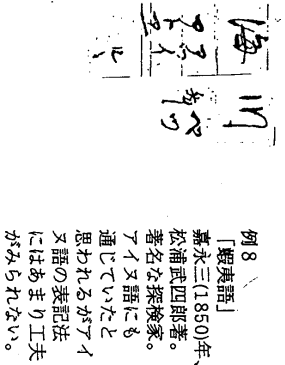 海
川
ベツ
例8
「蝦夷語」
嘉永三(1850)年、
松浦武四郎著。
著名な探検家。
アイヌ語にも
通じていたと
思われるがアイ
ヌ語の表記法
にはあまり工夫
がみられない。